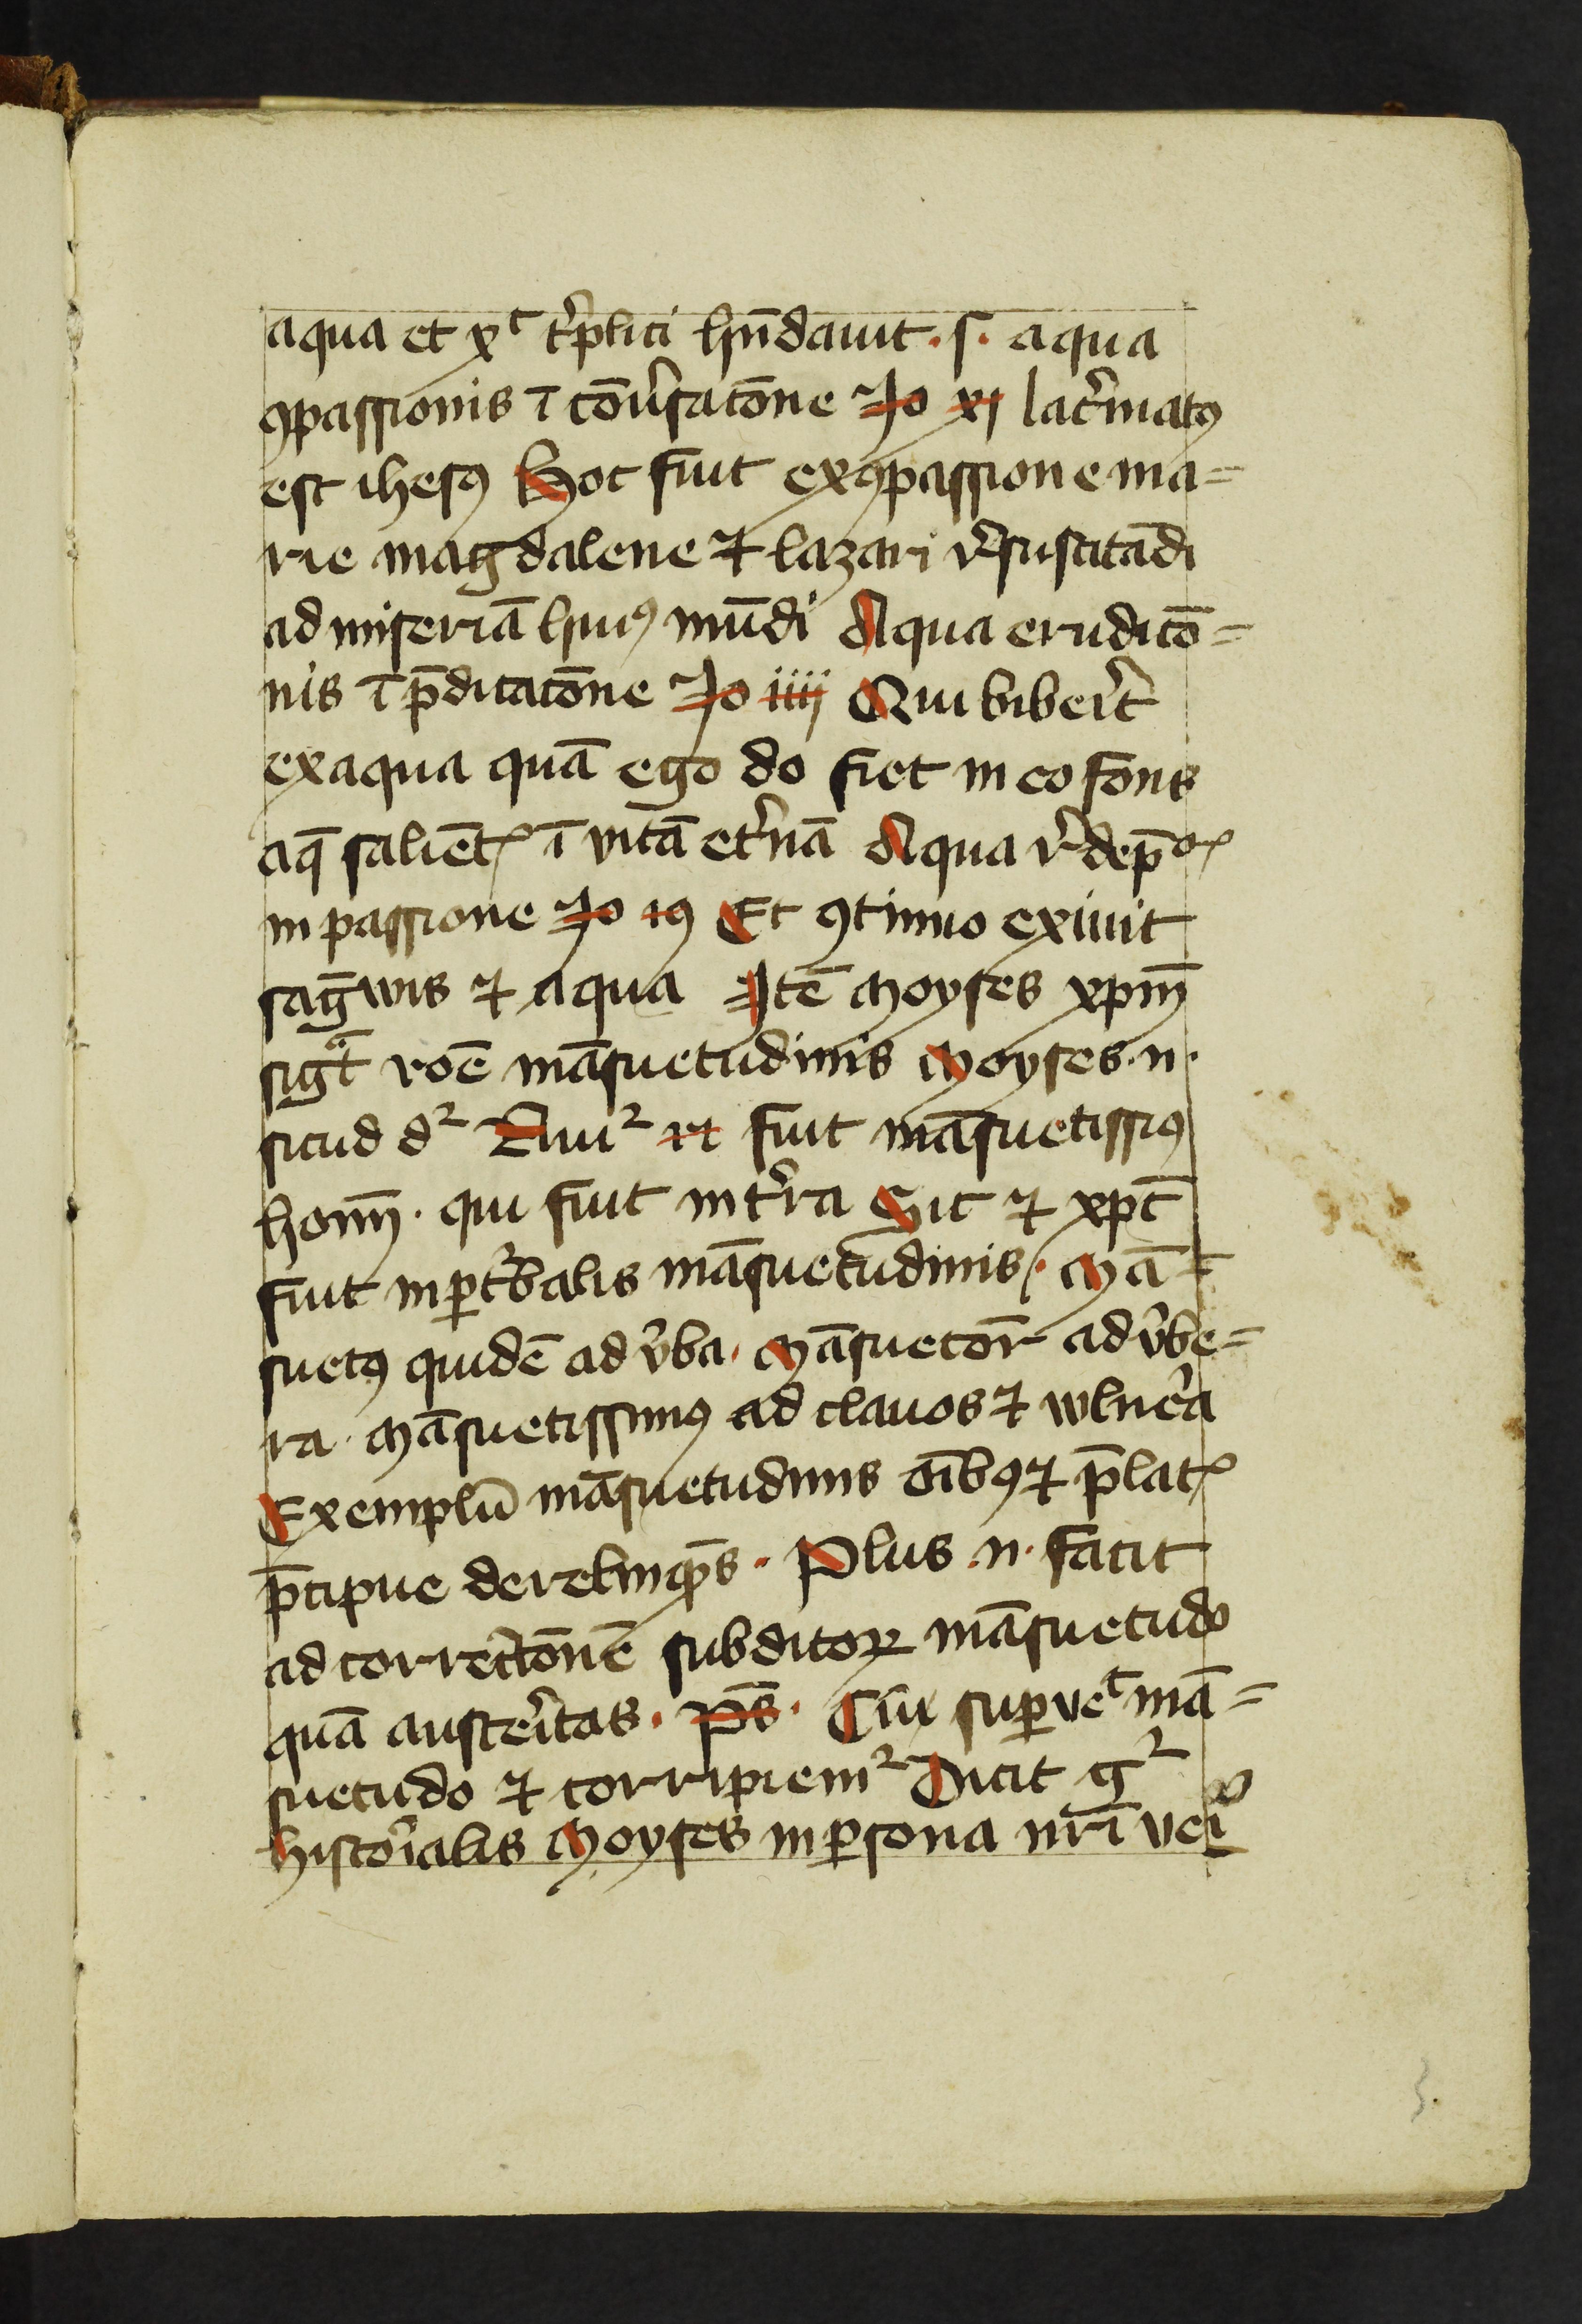 aqua et xͨ t̾plici hn̄dauit · s · aqua
ꝯpassionis ī cōu̾satōne Jo xj lac̾matꝰ
est ihesꝰ Hoc fuit ex ꝯpassione ma=
rie magdalene ⁊ lazari r̾suscitādi
ad miseriā huiꝰ mūdi Aqua eruditō=
nis ī p̄dicatōne Jo iiij Qui biber̾t
ex aqua quā ego do fiet in eo fons
aq̄ salient̄ꝭ ī vitā et̾nā Aqua r̾dēpōꝭ
in passione Jo 19 Et ꝯtinuo exiuit
sag̅wis ⁊ aqua Jtē Moyses xpm̄
sig͛t roē māsuetudinis Moyses · n ·
sicud dᷣ Nuıᷣ 12 fuit māsuetissiꝰ
hom̄ · qui fuit in t̾ra Sic ⁊ xpc̄
fuit inꝑt̾balis māsuetudinis · Mā=
suetꝰ quidē ad v̾ba · Māsuetor̄ ad v̾be=
ra · Māsuetissimꝰ ad clauos ⁊ wlne̾a
Exemplū māsuetudinis oībꝰ ⁊ p̄latꝭ
p̄cipue derelinq̄ns · Plus · n · facit
ad correctōnē subditoꝝ māsuetudo
quā auste̾itas · pˢ · Cū suꝑveͭ mā=
suetudo ⁊ corripiemᷣ Dicit gᷣ
historialis Moyses in ꝑsona nr̄i vei̾